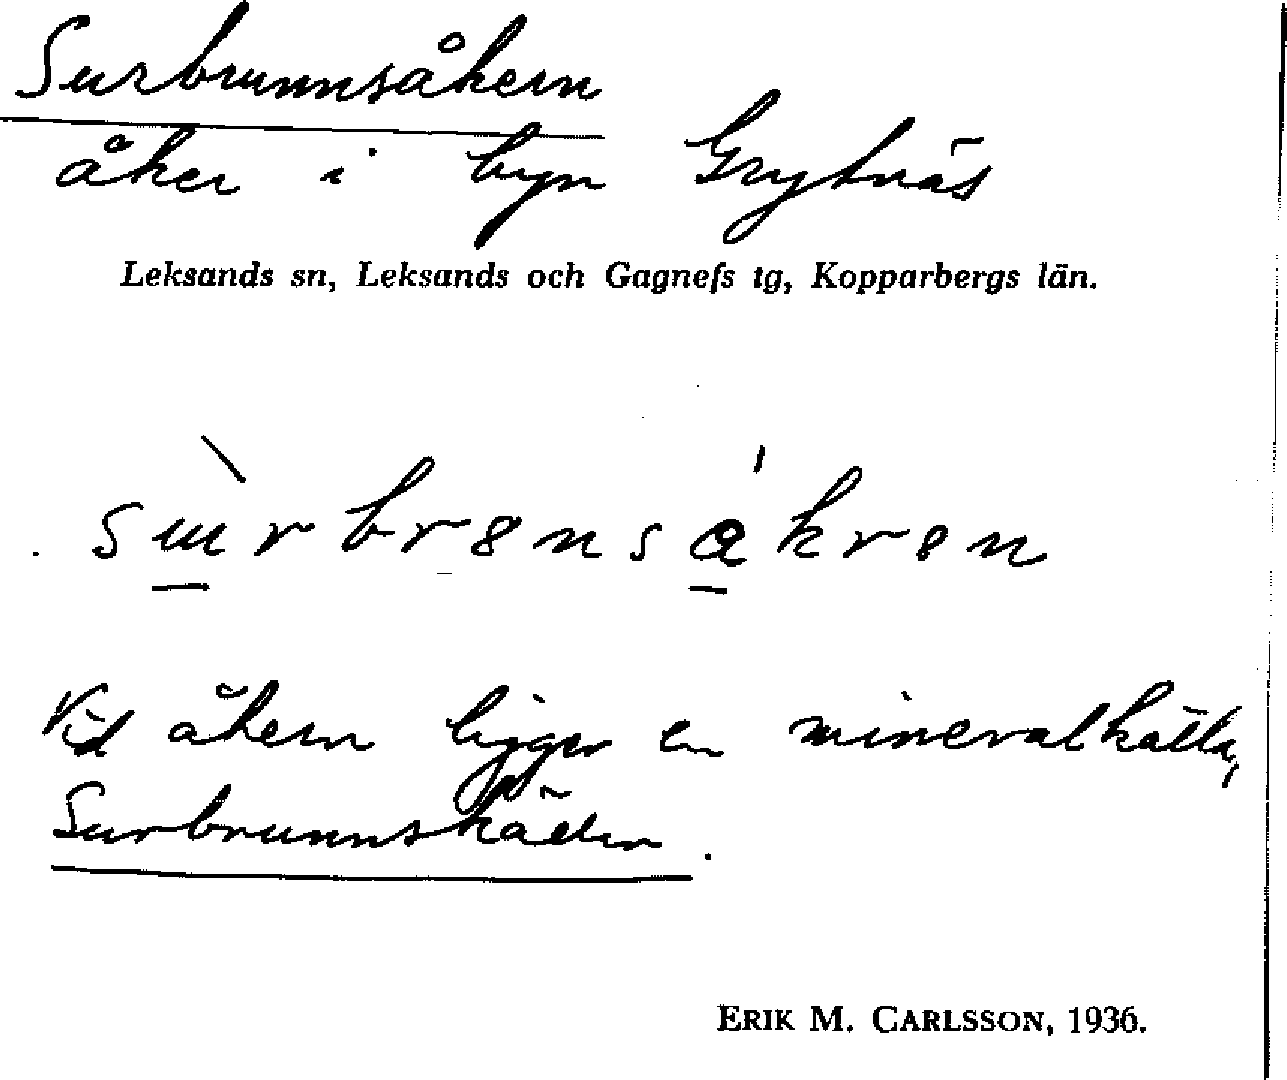 Surbrunnsåkern
åker i byn Grytnäs
Leksands sn, Leksands och Gagnefs tg, Kopparbergs län.
Vid åkern ligger en mineralkälla,
Surbrunnskällan.
ERIK M. CARLSSON, 1936.